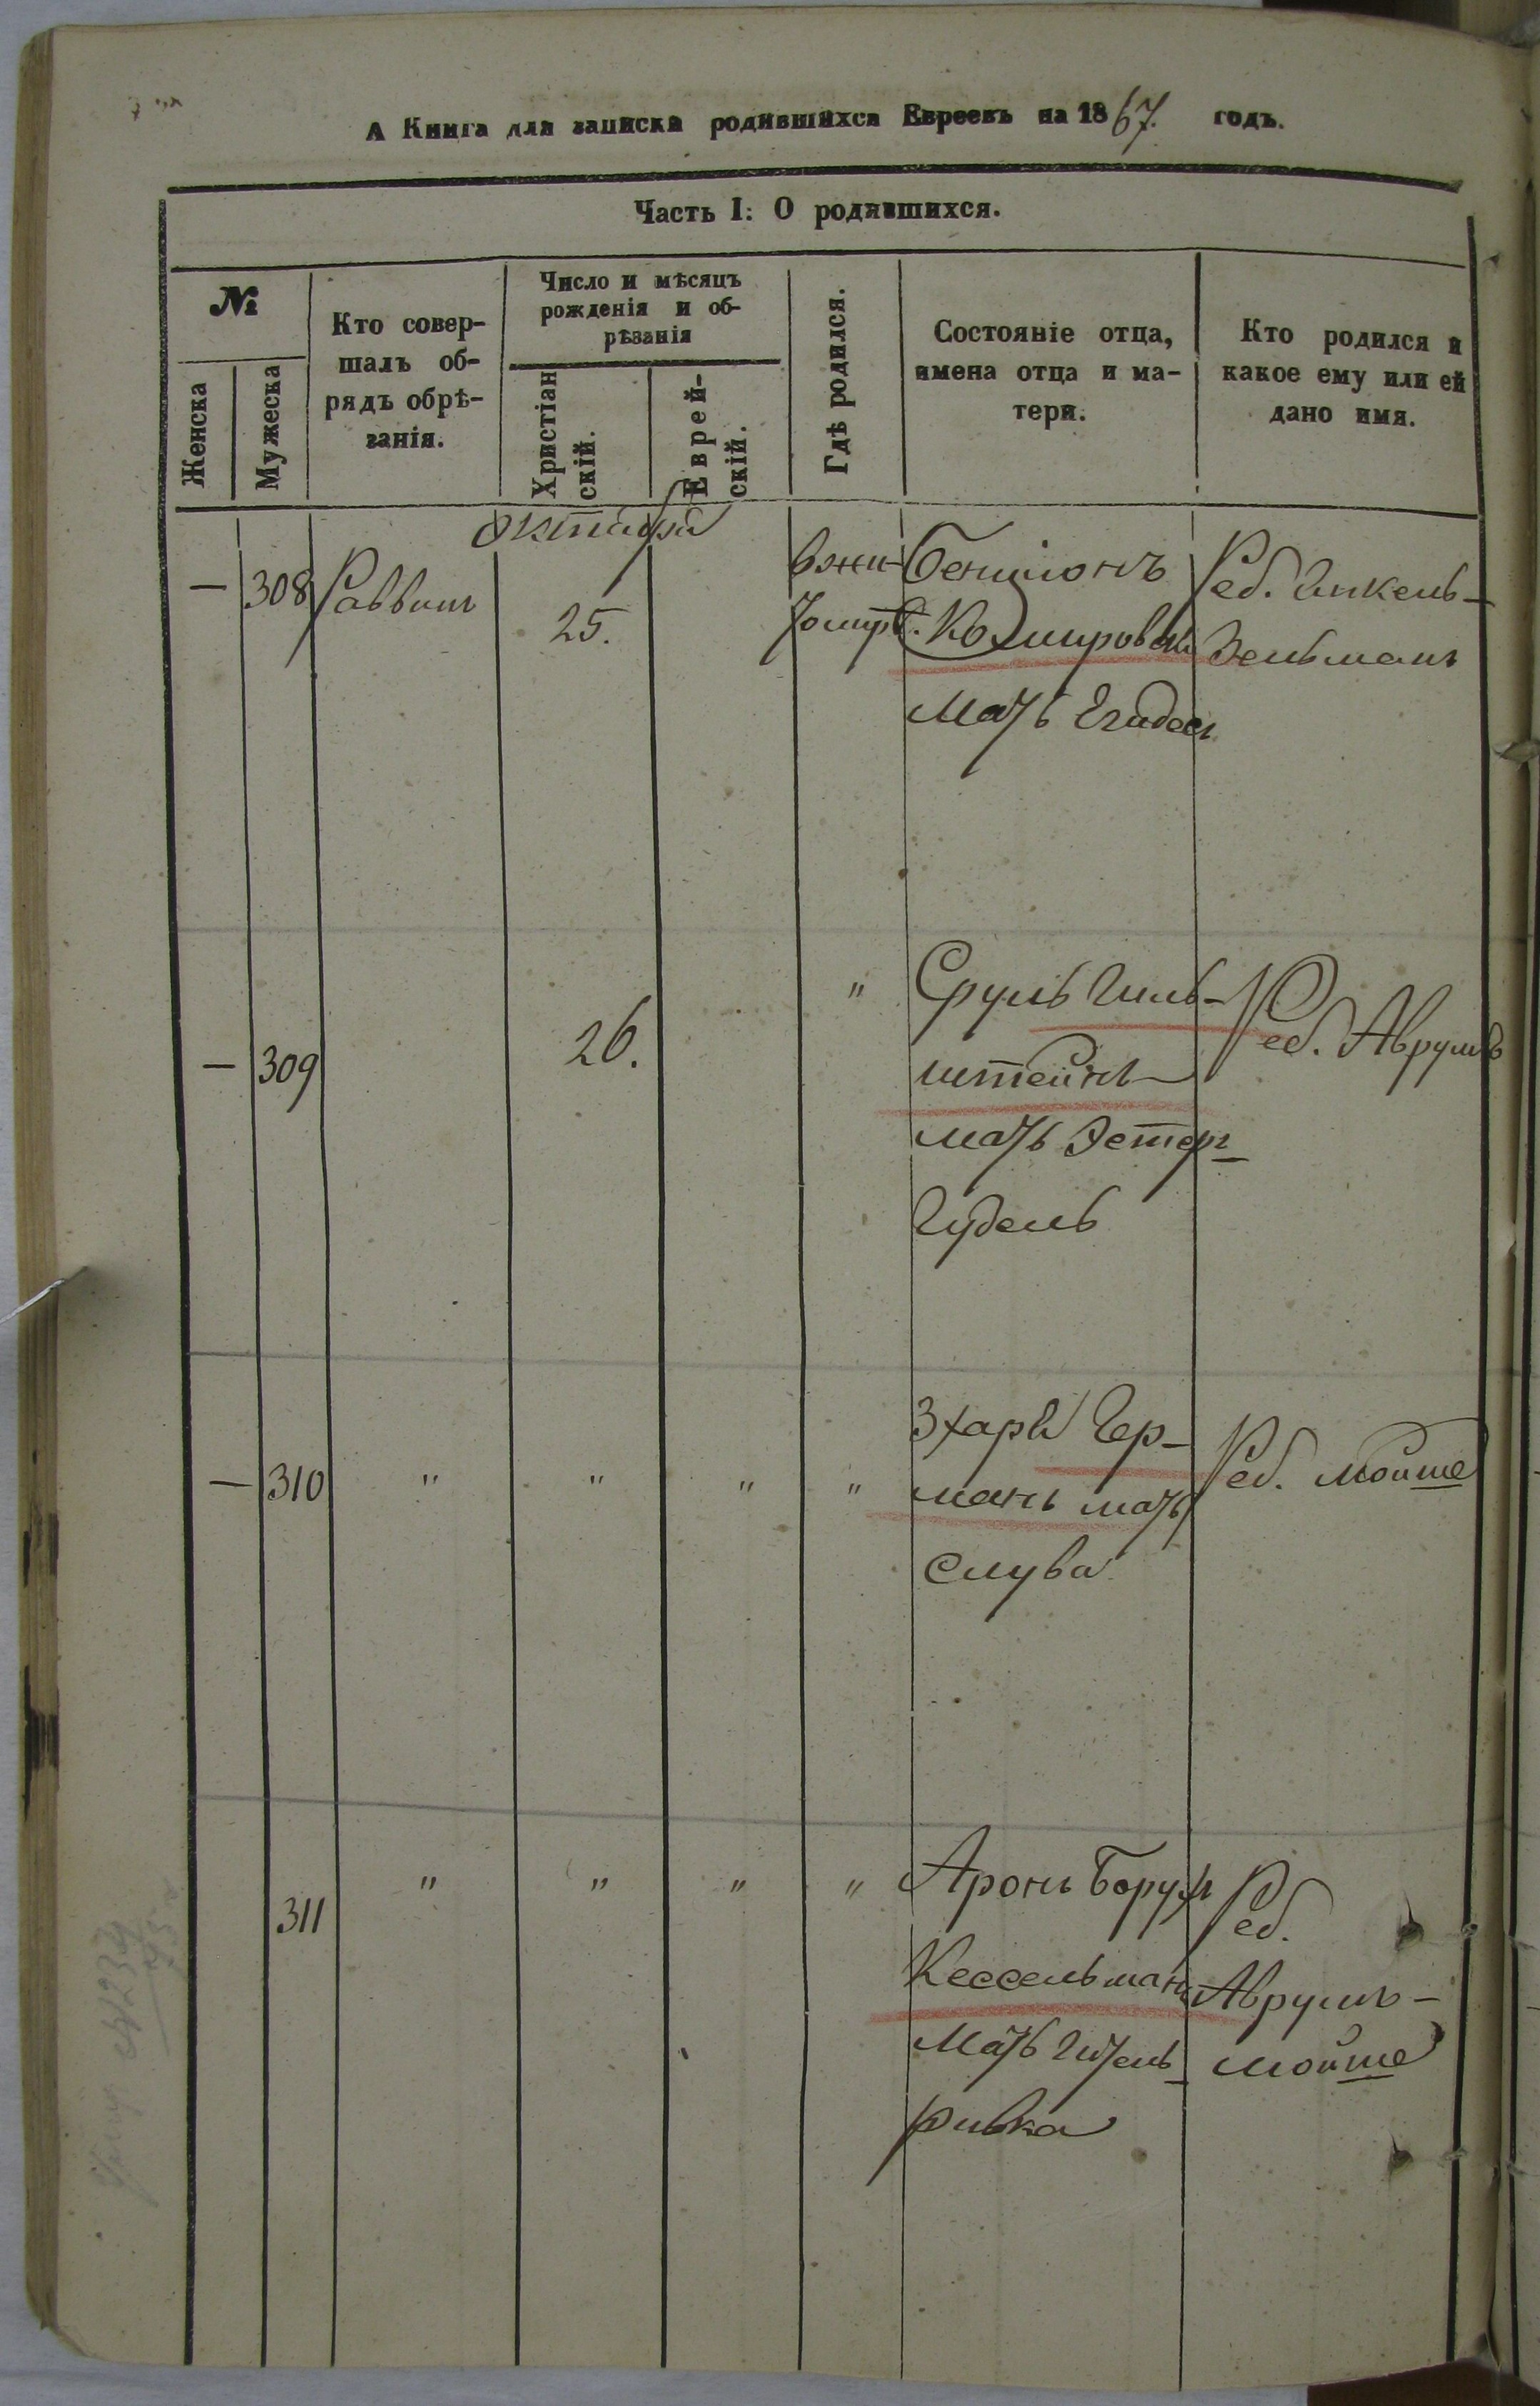 А Книга для записки родившихся Евреевъ на 1867. годъ.
Часть I: О родившихся.
№
Женска
Мужеска
Кто совер-
шалъ об-
рядъ обрѣ-
занія.
Число и мѣсяцъ
рожденія и об-
рѣзанія
Христіан
скій.
Еврей-
скій.
Гдѣ родился.
Состояніе отца,
имена отца и ма-
тери.
Кто родился и
какое ему или ей
дано имя.
октября
— 308 Раввинъ 25. в жи-
томрѣ.
Бенціонъ
мать
Реб.
Зельманъ
— 309 26. "
Сруль Гиль-
штейнъ
мать Эстеръ
Гудель
Реб. Аврумъ
— 310 " " " "
Зхарія Гер-
манъ мать
Слува
Реб. Мойше
311 " " " "
Аронъ Борухъ
Кессельманъ
мать Гитель
Ривка
Реб.
Аврумъ-
Мойше